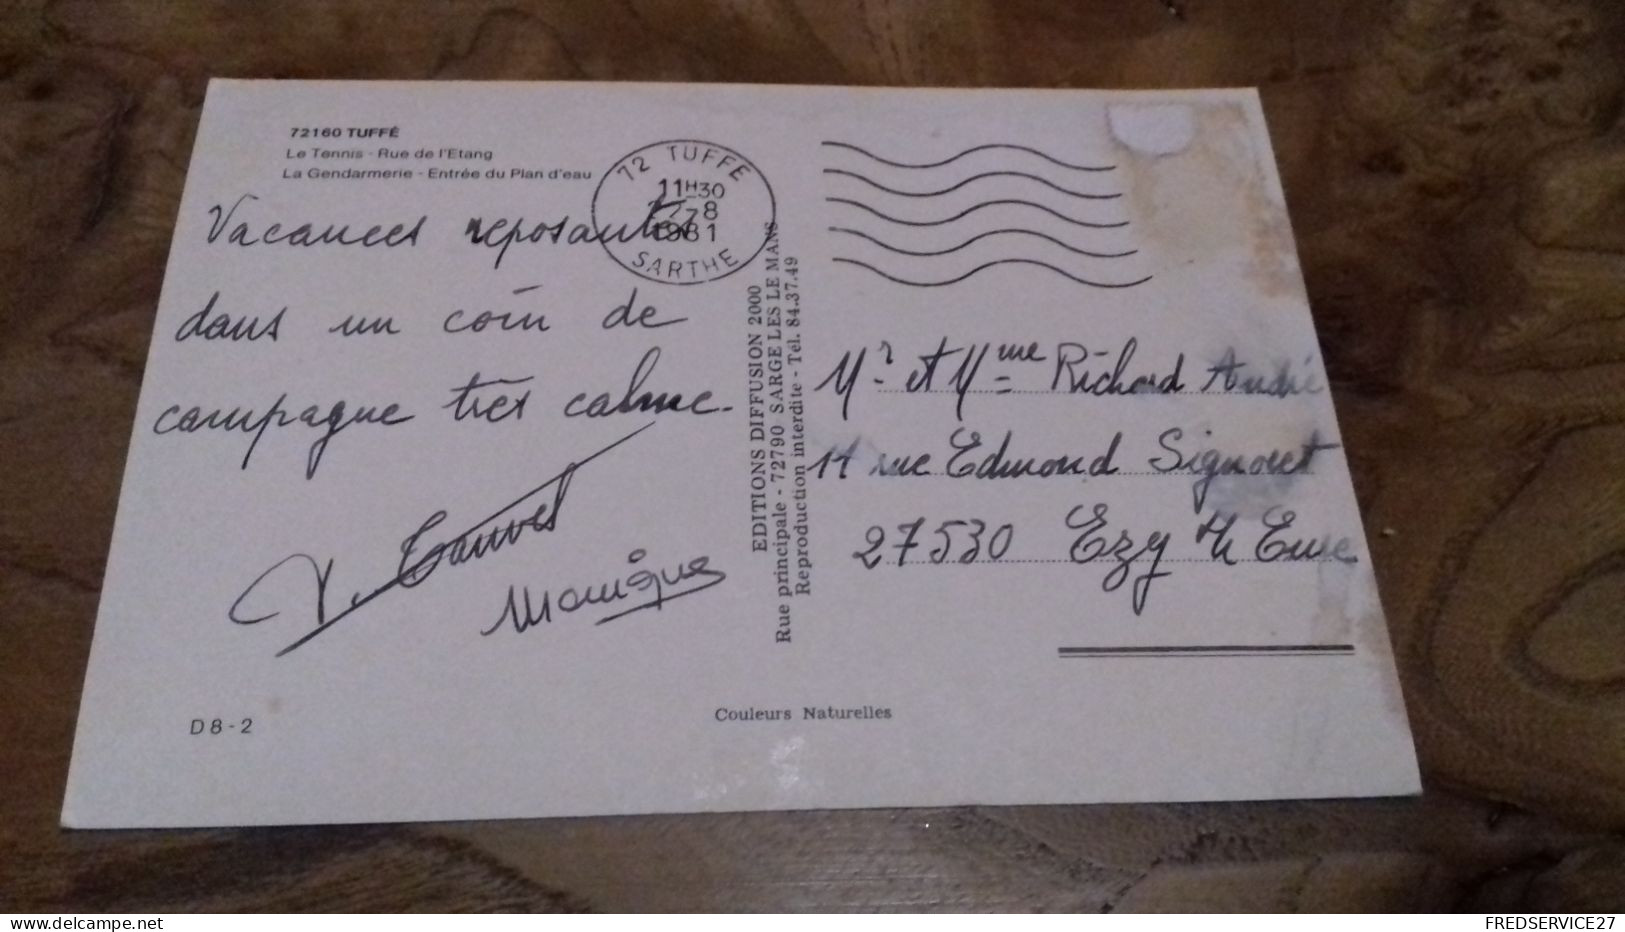 72160 TUFFÉ
Le Tennis - Rue de l'Etang
La Gendarmerie - Entrée du Plan d'eau
72 TUFFE
11H30
8
1981
SARTHE
Vacances reposantes
dans un coin de
campagne très calme.
Monique
EDITIONS DIFFUSION 2000
Rue principale - 72790 SARGE LES LE MANS
Reproduction interdite - Tél. 84.37.49
Mr et Mme Richard André
rue Edmond Signoret
27530 Ezy s/ Eure
D 8 - 2
Couleurs Naturelles
FREDSERVICE27
www.delcampe.net